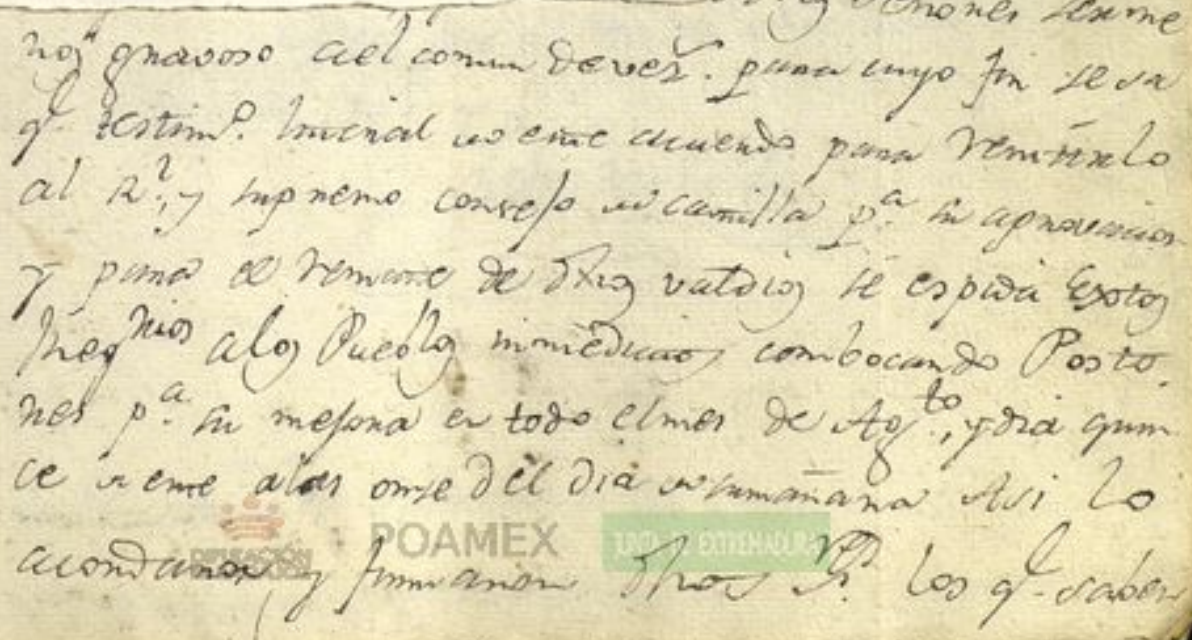 señores ser me
nos gravoso a el comun de vez.s para cuyo fin se sa
q.e testim.o literal de este acuerdo para remitirlo
al R.l, y supremo consejo de castilla p.a su aprovacion
y para el remate de dhos valdios se espida Exotos
Req.rios a los Pueblos inmediatos combocando Posto
res p.a su mejora en todo el mes de Ag.to, y dia quin
ce de este a las onse del dia de su mañana Asi lo
acordaron y firmaron dhos S.res los q.e saben
POAMEX
JUNTA DE EXTREMADURA
DIPUTACIÓN